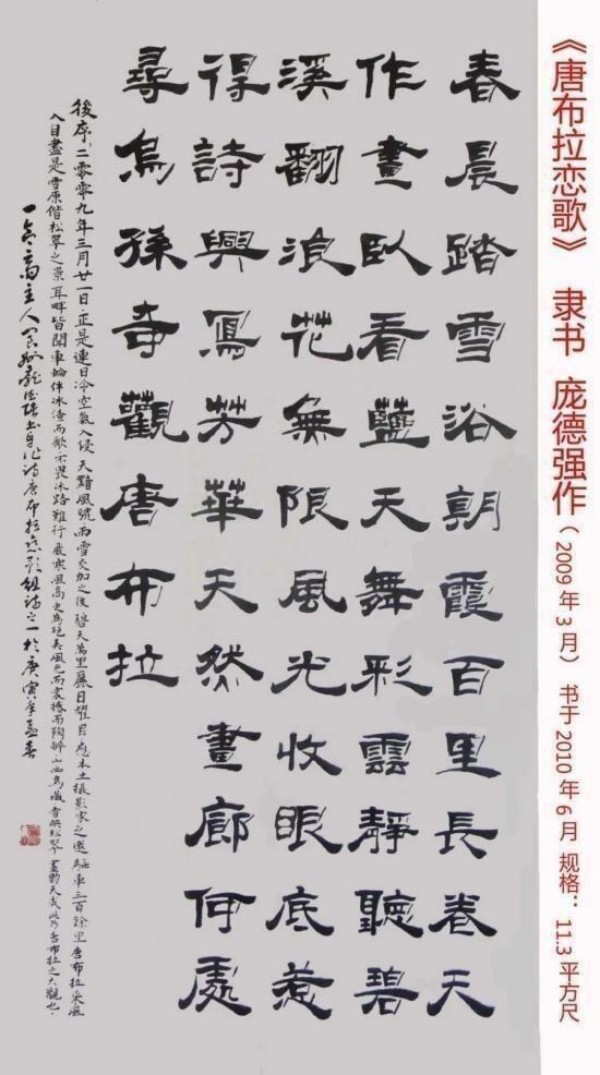 《唐布拉恋歌》 隶书 庞德强作（2009年3月） 书于2010年6月 规格： 11.3平方尺
春晨踏雪浴朝霞百里長卷天
作畫臥看藍天舞彩雲靜聽碧
溪翻浪花無限風光收眼底惹
得詩興寫芳華天然畫廊何處
尋烏孫奇觀唐布拉
後序：二零零九年三月廿一日，正是連日冷空氣入侵天黯風號雨雪交加之後碧天萬里麗日耀目應本土攝影家之邀驅車三百餘里唐布拉采風
入目盡是雪原偕松翠之景耳畔皆聞車輪伴冰渣而歌不畏冰路難行嚴寒風高更為絕美風光而震撼而陶醉雪映松翠畫韵天成此乃唐布拉之大觀也
主人龐德強書自作詩唐布拉戀歌組詩之一於庚寅年